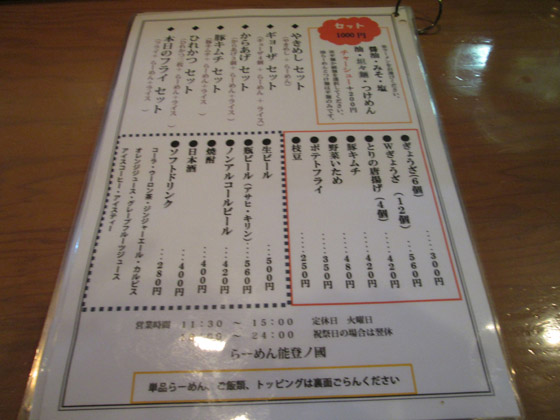 セット
1000円
醤油・みそ・塩
柚・坦々麺・つけめん
チャーシュー+200円
◆やきめし セット
◆ギョーザ セット
◆からあげ セット
◆豚キムチ セット
◆ひれかつ セット
◆本日のフライ セット
●ぎょうざ(6個) ....300円
●Wぎょうざ(12個) ....560円
●とりの唐揚げ(4個) ....420円
●豚キムチ ....420円
●野菜いため ....480円
●ポテトフライ ....350円
●枝豆 ....250円
●生ビール ....500円
●瓶ビール(アサヒ・キリン) ....560円
●ノンアルコールビール ....420円
●焼酎 ....400円
●日本酒 ....400円
●ソフトドリンク ....280円
コーラ・ウーロン茶・ジンジャーエール・カルピス
オレンジジュース・グレープフルーツジュース
アイスコーヒー・アイスティー
営業時間 11:30 ~ 15:00 定休日 火曜日
~ 24:00 祝祭日の場合は翌休
らーめん能登ノ國
単品らーめん、ご飯類、トッピングは裏面ごらんください